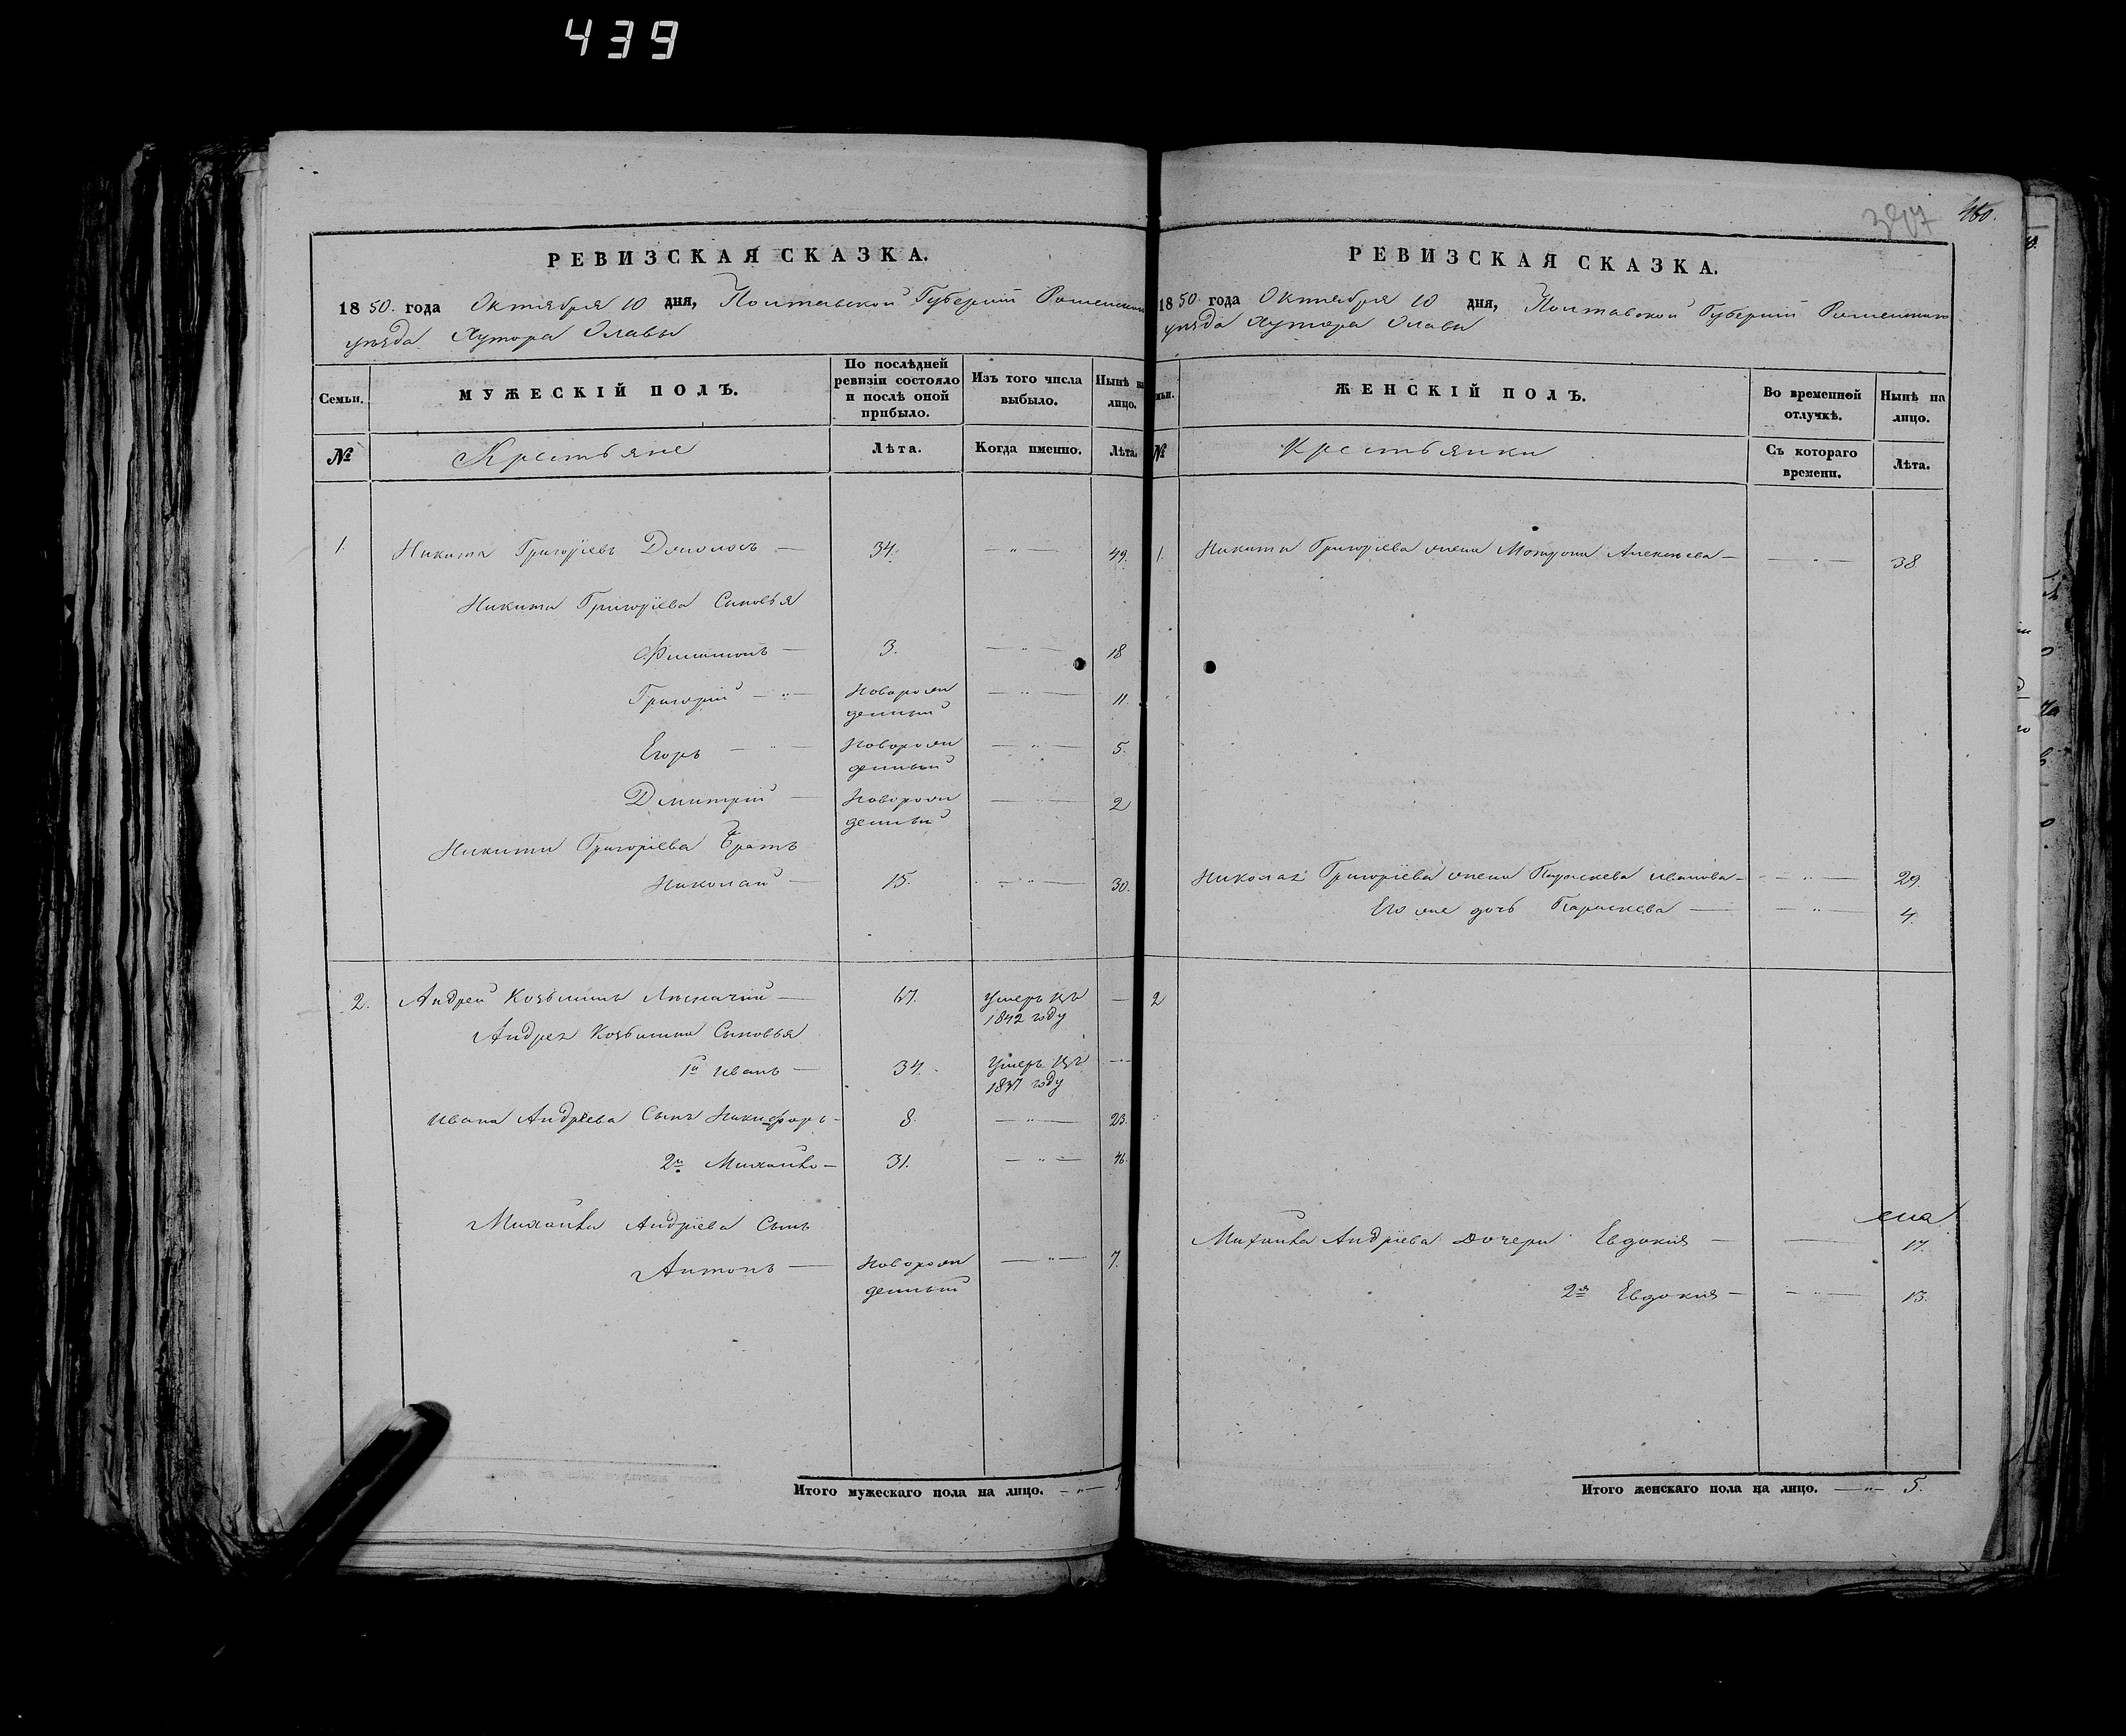 439
РЕВИЗСКАЯ СКАЗКА.
1850. года Октября 10 дня, Полтавской Губерніи Роменскаго
уѣзда Хутора Олавы
Семьи.
МУЖЕСКІЙ ПОЛЪ.
По послѣдней ревизіи состояло и послѣ оной прибыло.
Изъ того числа выбыло.
Нынѣ на лицо.
№
Крестьяне
Лѣта.
Когда именно.
Лѣта.
1. Никита Григорьевъ — 34. — " — 49.
Никиты Григорьева Сыновья
Филимонъ — 3. — " — 18
Григорій — " — Новорожденный — " — 11.
Егоръ — " — Новорожденный — " — 5.
Дмитрій — Новорожденный — " — 2
Никиты Григорьева Братъ
Николай — 15. — " — 30.
2. Андрей Козьминъ — 67. Умеръ въ 1842 году —
Андрея Козьмина Сыновья
1й Иванъ — 34. Умеръ въ 1837 году —
Ивана Андрѣева Сынъ Никифоръ — 8. — " — 23.
2й Михайло — 31. — " — 46.
Михайла Андрѣева Сынъ
Антонъ — Новорожденный — " — 7.
Итого мужескаго пола на лицо. — " —
397 460.
РЕВИЗСКАЯ СКАЗКА.
1850. года Октября 10 дня, Полтавской Губерніи Роменскаго
уѣзда Хутора Олавы
ЖЕНСКІЙ ПОЛЪ.
Во временной отлучкѣ.
Нынѣ на лицо.
№
Крестьянки
Съ котораго времени.
Лѣта.
1. Никиты Григорьева жена Мотрона Алексѣева — " — 38.
Николая Григорьева жена Параскева Иванова — " — 29.
Его же дочь Параскева — " — 4.
2
Михайла Андрѣева Дочери Евдокия — 17.
2я Евдокия — " — 13.
Итого женскаго пола на лицо. — " — 5.